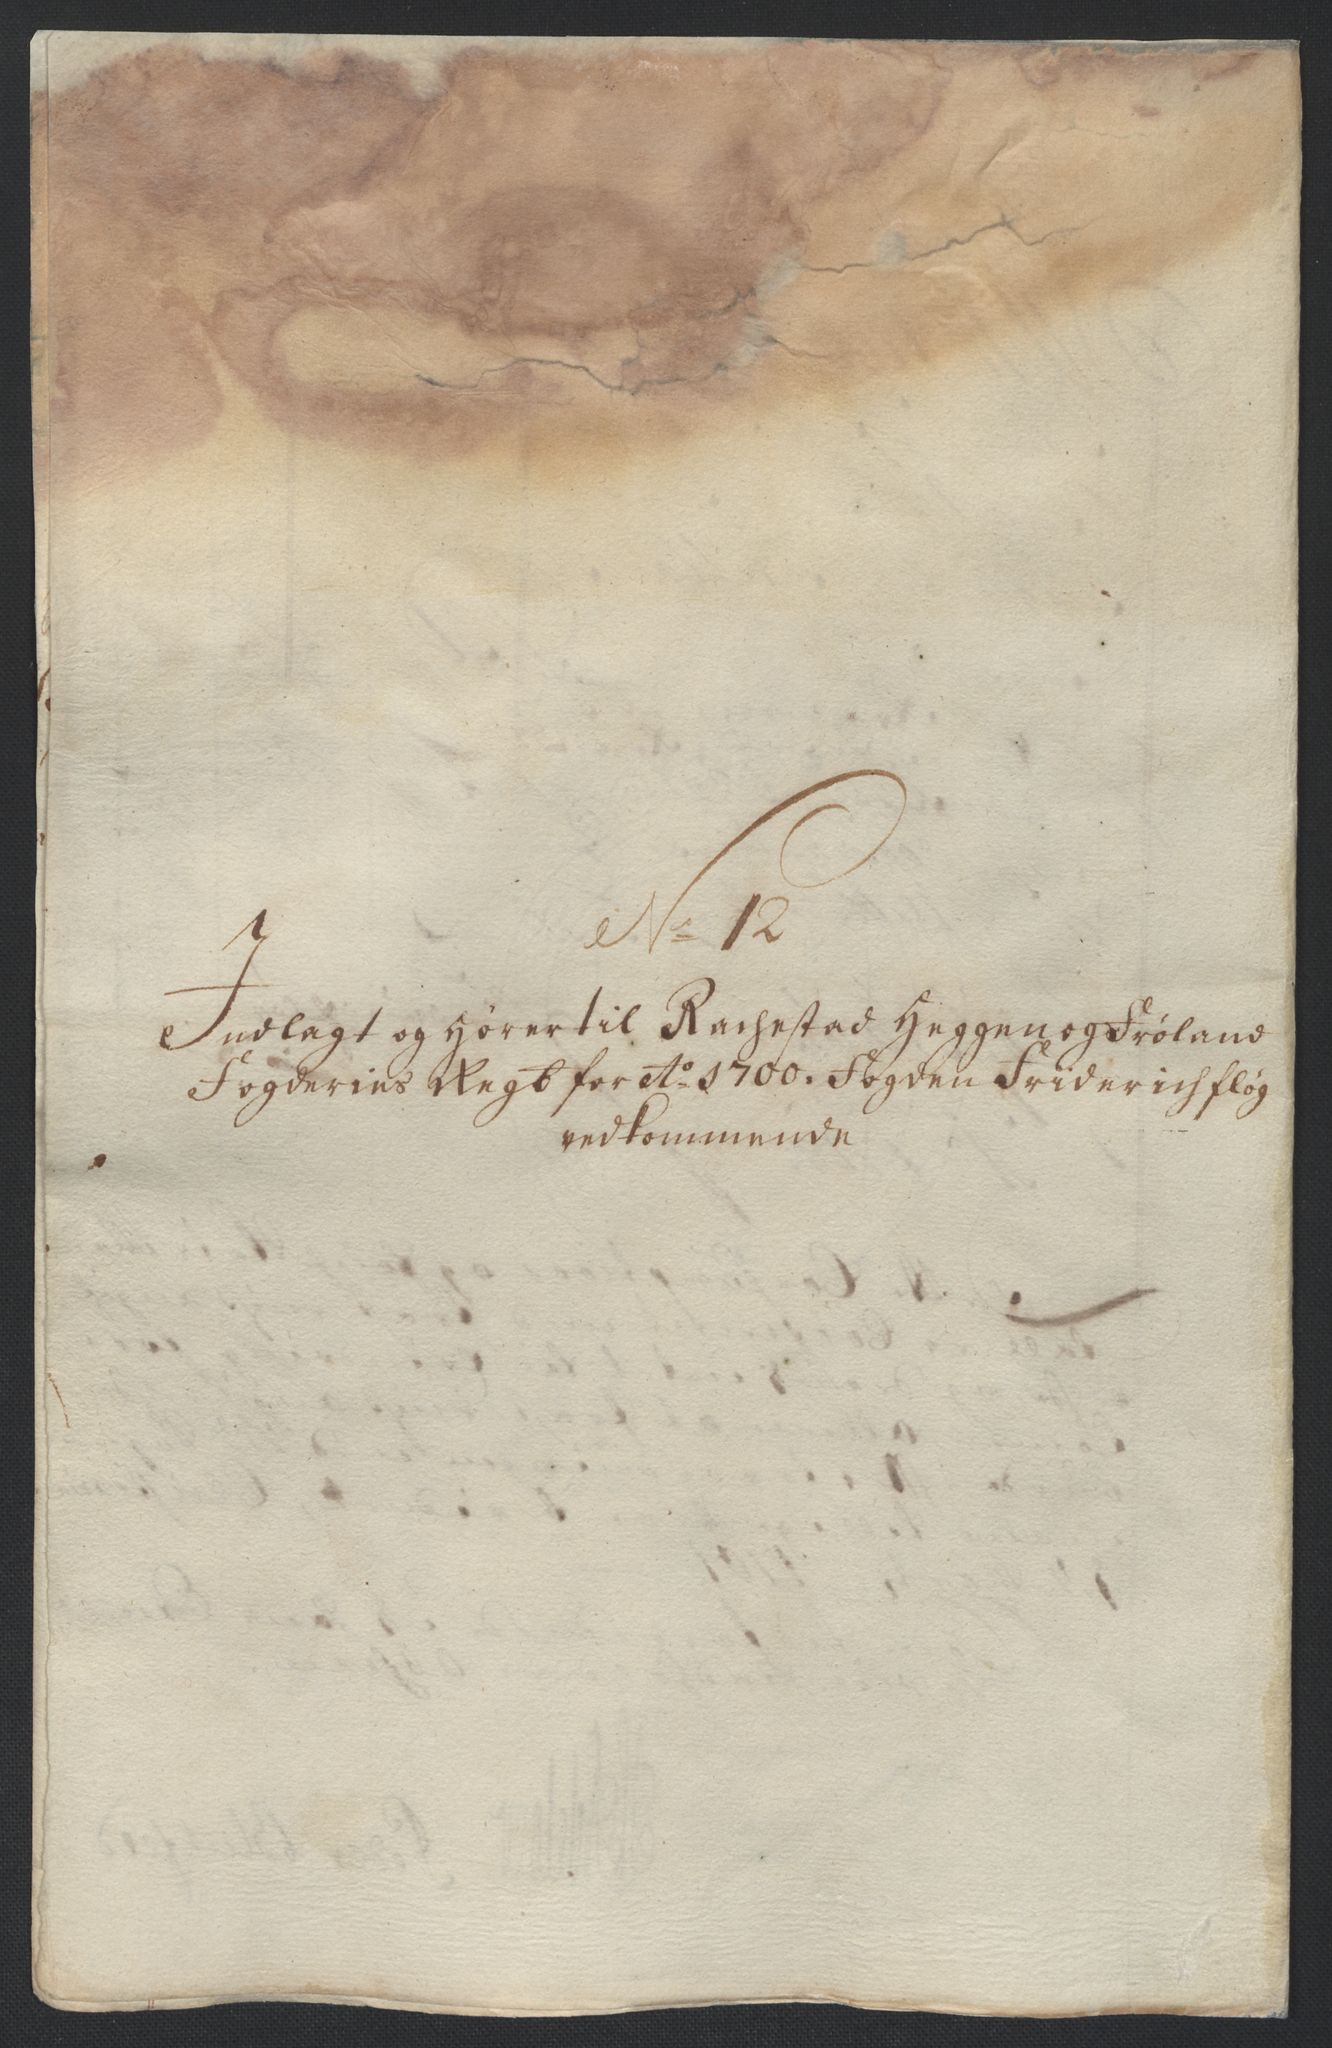 No 12
Indlagt og hører til Rachestad Heggen og Frøland
Fogderies Regb for Ao 1700. Fogden Friderich fløg
vedkommende